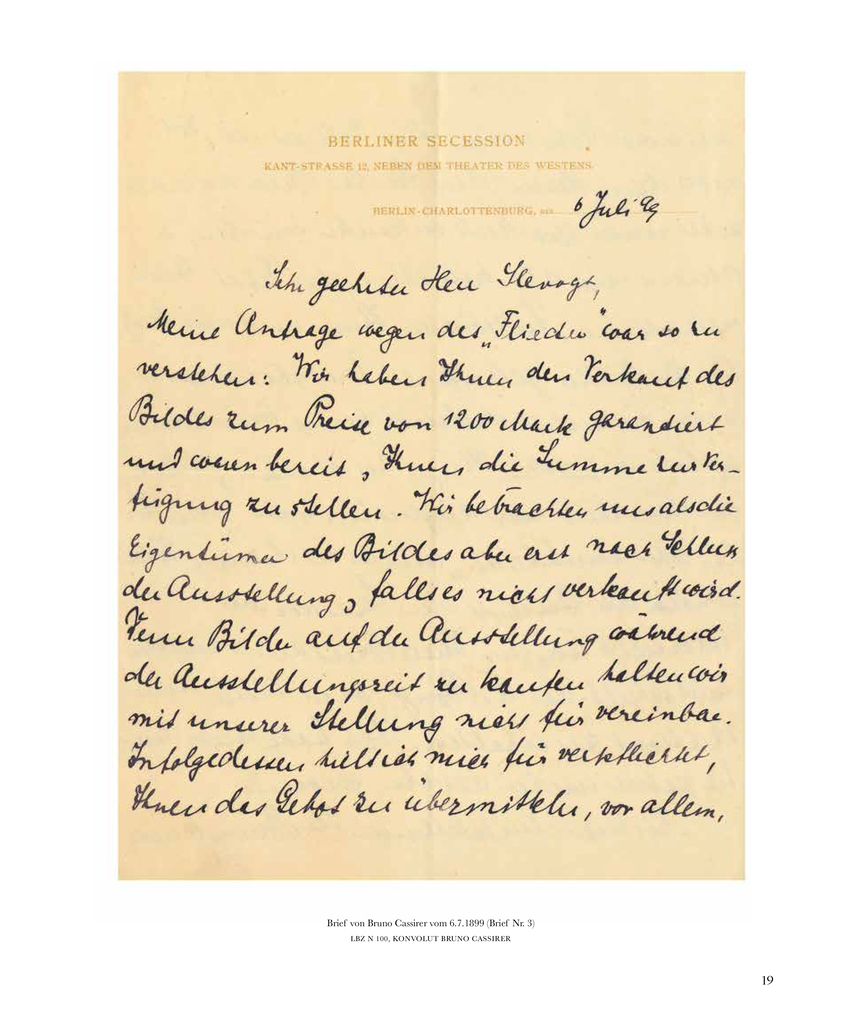 BERLINER SECESSION
KANT-STRASSE 12, NEBEN DEM THEATER DES WESTENS.
BERLIN-CHARLOTTENBURG, DEN 6 Juli 99
Sehr geehrter Herr Slevogt,
Meine Anfrage wegen des „Flieder" war so zu
verstehen: Wir haben Ihnen den Verkauf des
Bildes zum Preise von 1200 Mark garandiert
und waren bereit, Ihnen die Summe zur Ver-
fügung zu stellen. Wir betrachten uns als die
Eigentümer des Bildes aber erst nach Schluss
der Ausstellung, falls es nicht verkauft wird.
Denn Bilder auf der Ausstellung während
der Ausstellungszeit zu kaufen halten wir
mit unserer Stellung nicht für vereinbar.
Infolgedessen hielt ich mich für verpflichtet,
Ihnen das Gebot zu übermitteln, vor allem,
Brief von Bruno Cassirer vom 6.7.1899 (Brief Nr. 3)
LBZ N 100, KONVOLUT BRUNO CASSIRER
19